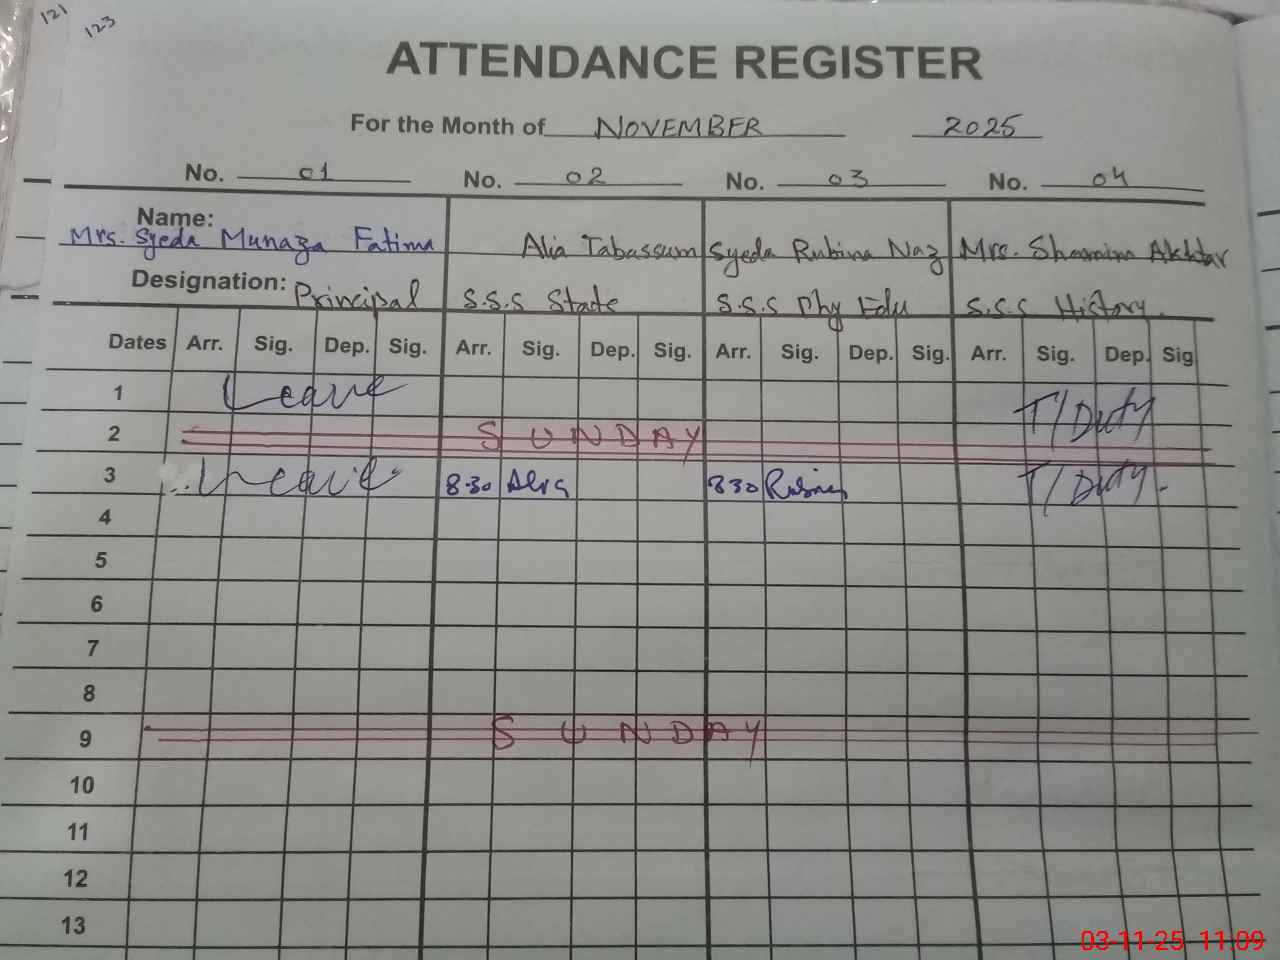 121
123
ATTENDANCE REGISTER
For the Month of NOVEMBER 2025
No. 01 No. 02 No. 03 No. 04
Name:
Mrs. Syeda Munaza Fatima Alia Tabassum Syeda Rubina Naz Mrs. Shamim Akhtar
Designation: Principal S.S.S State S.S.S Phy Edu S.S.S History.
Dates Arr. Sig. Dep. Sig. Arr. Sig. Dep. Sig. Arr. Sig. Dep. Sig. Arr. Sig. Dep. Sig
1 Leave T/Duty
2 SUNDAY
3 Leave 8-30 Alia 830 Rubina T/Duty.
4
5
6
7
8
9 SUNDAY
10
11
12
13
03-11-25 11:09